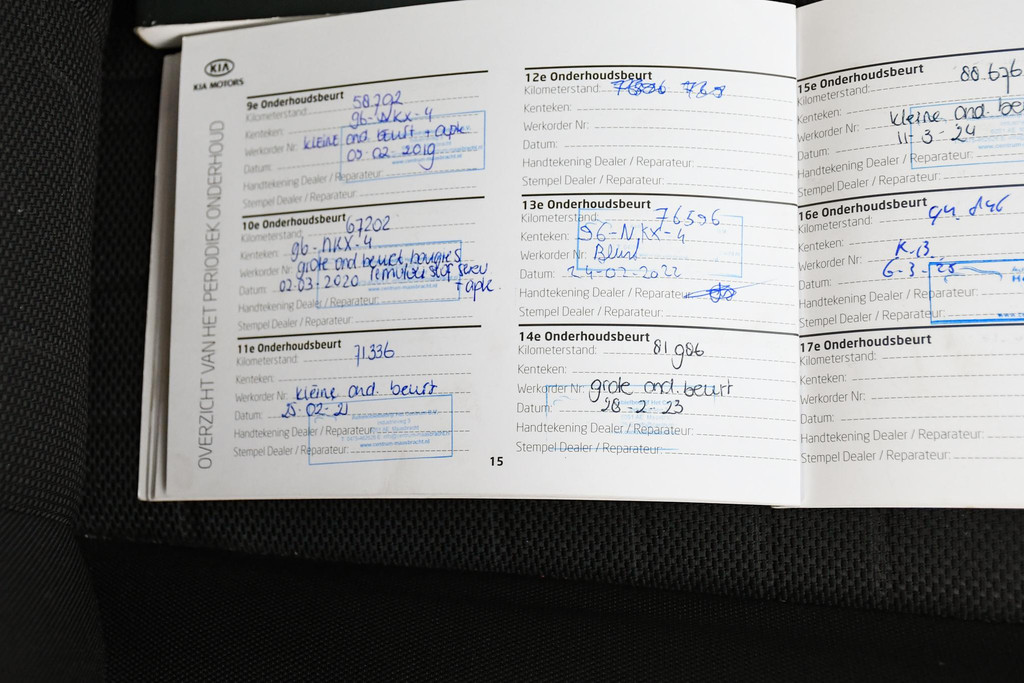 KIA
KIA MOTORS
OVERZICHT VAN HET PERIODIEK ONDERHOUD
9e Onderhoudsbeurt
Kilometerstand: 58.202
Kenteken: 96-NKX-4
Werkorder Nr: kleine ond. beurt + apk
Datum: 05-02-2019
Handtekening Dealer / Reparateur:
Stempel Dealer / Reparateur:
10e Onderhoudsbeurt
Kilometerstand: 67202
Kenteken: 96-NKX-4
Werkorder Nr: grote ond beurt, bougies
Datum: 02-03-2020 remvloeistof
+ apk.
Handtekening Dealer / Reparateur:
Stempel Dealer / Reparateur:
11e Onderhoudsbeurt
Kilometerstand: 71336
Kenteken:
Werkorder Nr: kleine ond. beurt
Datum: 25-02-21
Handtekening Dealer / Reparateur:
Stempel Dealer / Reparateur:
www.centrum-maasbracht.nl
15
12e Onderhoudsbeurt
Kilometerstand:
Kenteken:
Werkorder Nr:
Datum:
Handtekening Dealer / Reparateur:
Stempel Dealer / Reparateur:
13e Onderhoudsbeurt
Kilometerstand: 76596
Kenteken: 96-NKX-4
Werkorder Nr: Beurt
Datum: 24-02-2022
Handtekening Dealer / Reparateur:
Stempel Dealer / Reparateur:
14e Onderhoudsbeurt
Kilometerstand: 81986
Kenteken:
Werkorder Nr: grote ond. beurt
Datum: 28-2-23
Handtekening Dealer / Reparateur:
Stempel Dealer / Reparateur:
15e Onderhoudsbeurt
Kilometerstand: 88.676
Kenteken:
Werkorder Nr: kleine ond. be
Datum: 11-3-24
Handtekening Dealer / Reparateur:
Stempel Dealer / Reparateur:
16e Onderhoudsbeurt
Kilometerstand:
Kenteken:
Werkorder Nr: K.B.
Datum: 6-3-25
Handtekening Dealer / Reparateur:
Stempel Dealer / Reparateur:
17e Onderhoudsbeurt
Kilometerstand:
Kenteken:
Werkorder Nr:
Datum:
Handtekening Dealer / Reparateur:
Stempel Dealer / Reparateur: